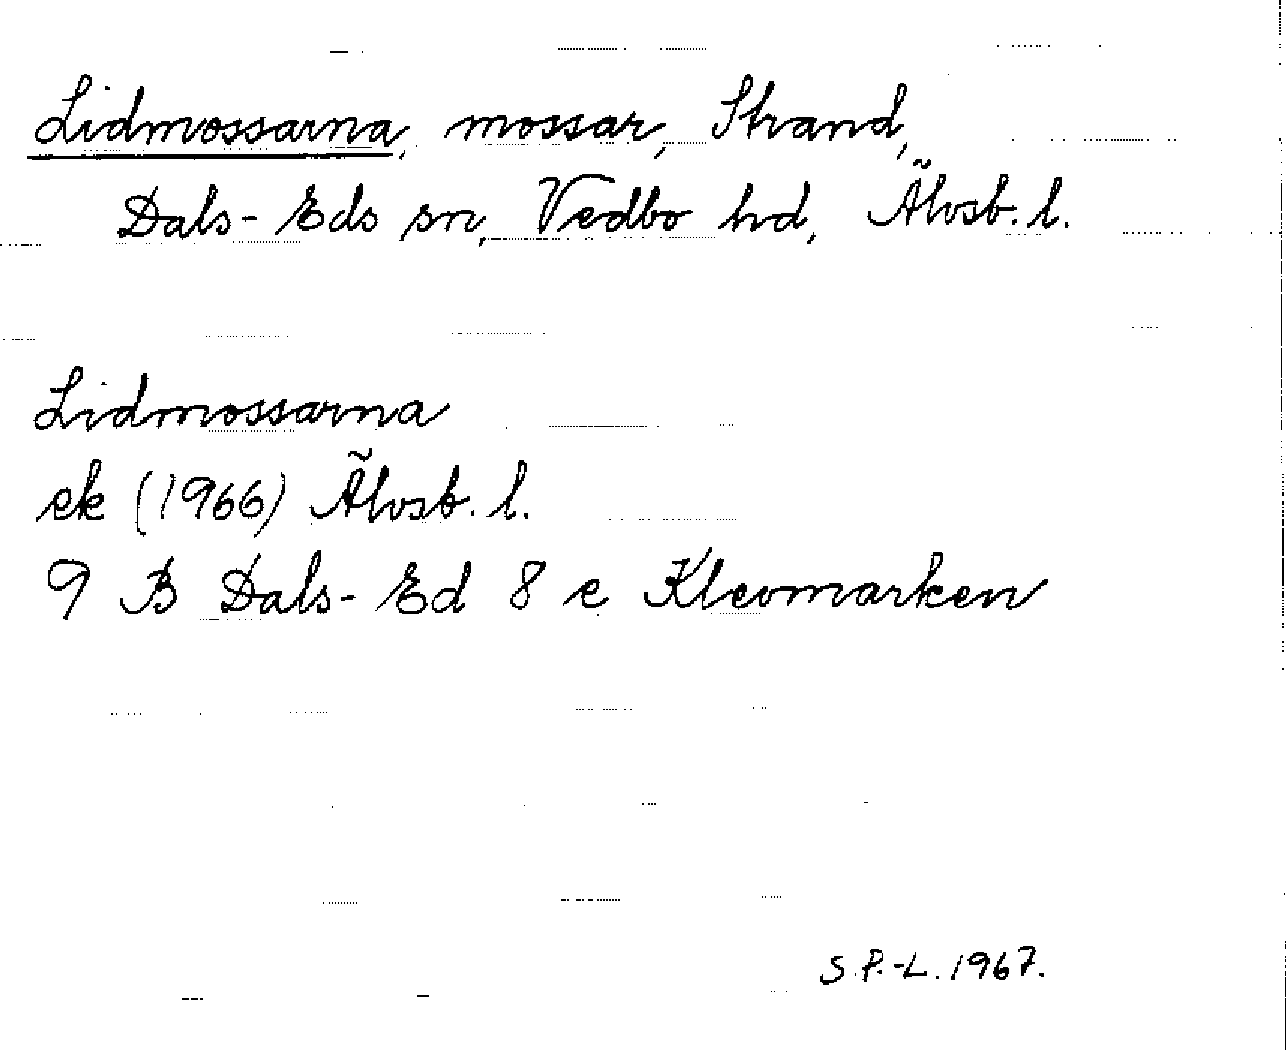 Lidmossarna, mossar, Strand,
Dals-Eds sn, Vedbo hd, Älvsb. l.
Lidmossarna
ek (1966) Älvsb. l.
9 B Dals-Ed 8 e Klevmarken
S.P.-L. 1967.